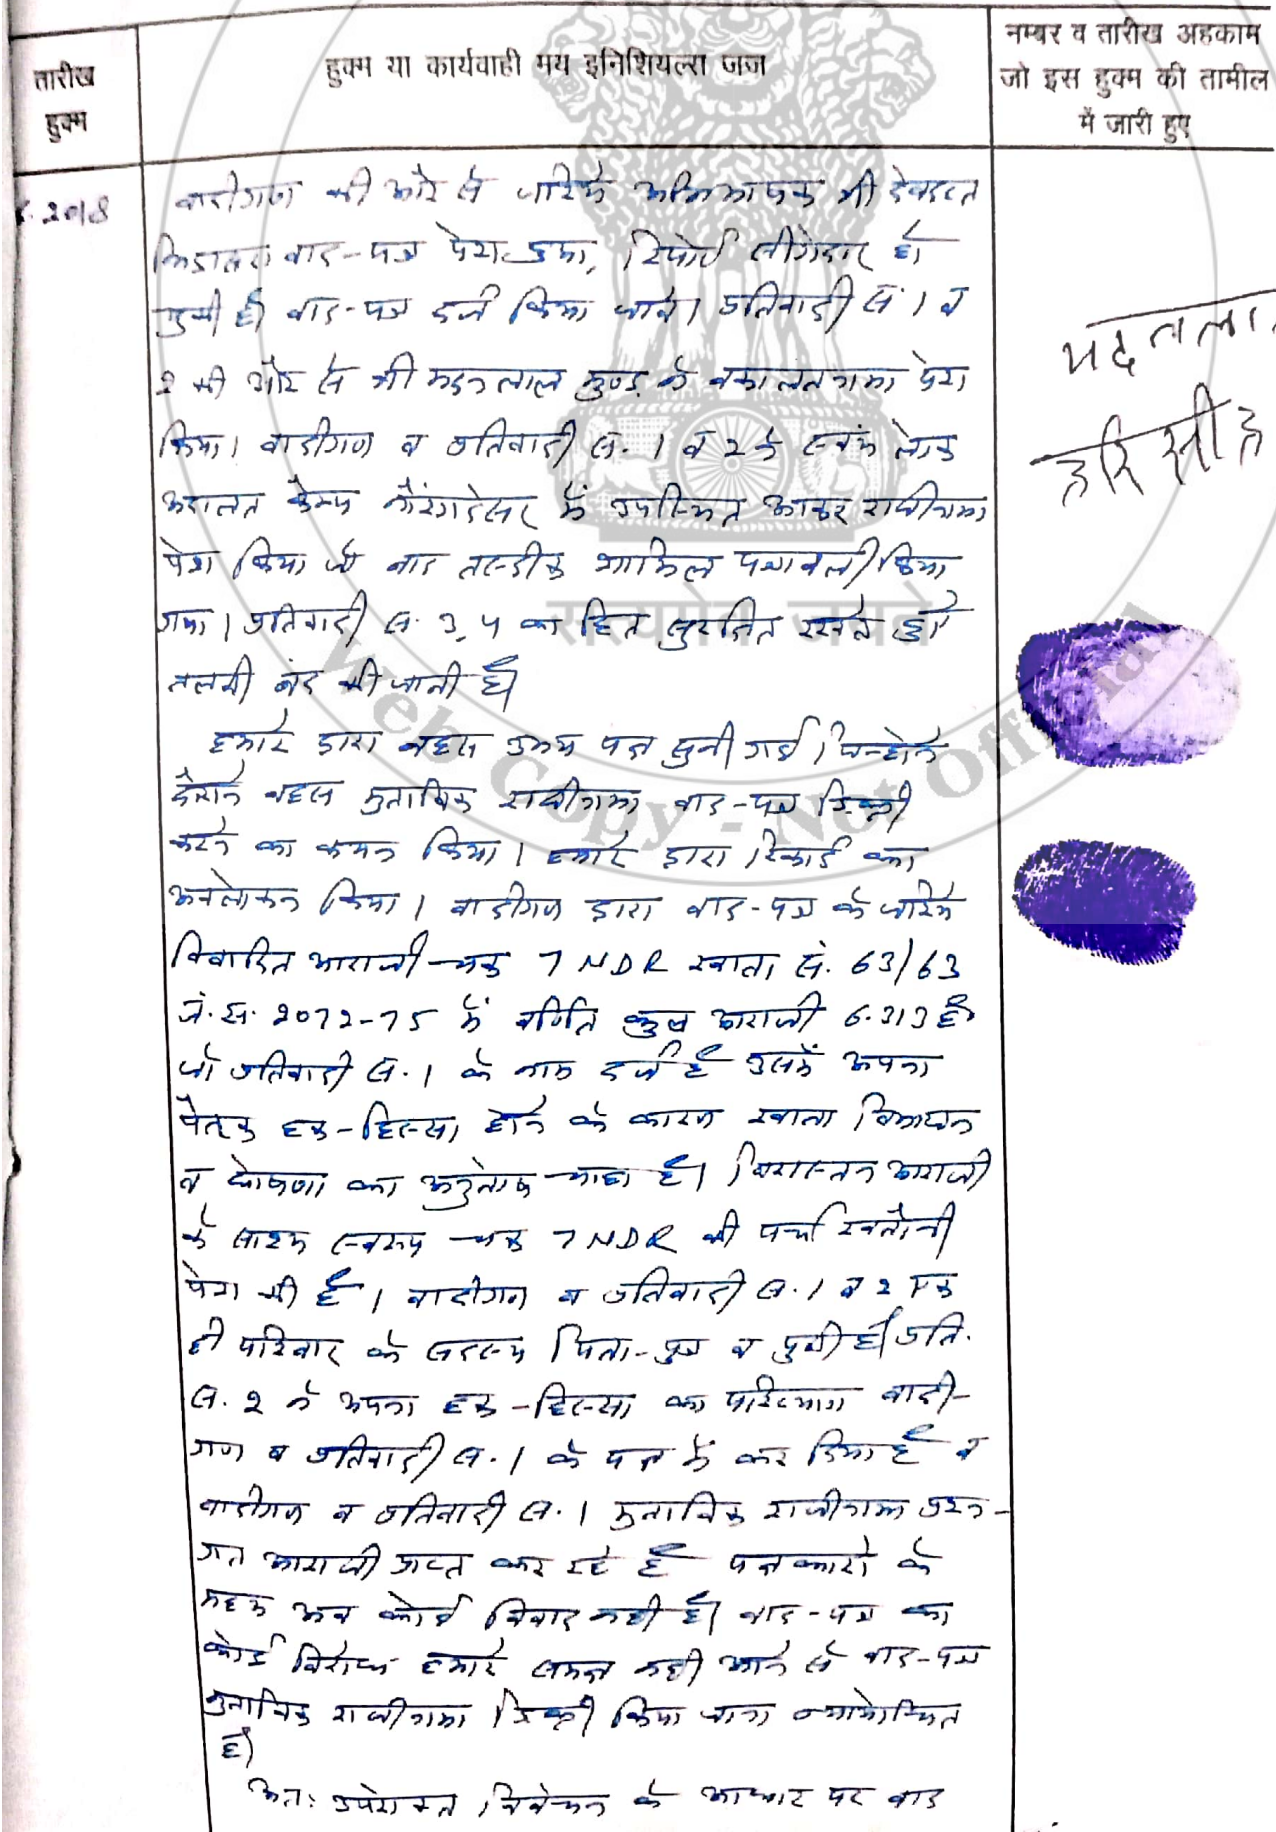 तारीख
हुक्म
हुक्म या कार्यवाही मय इनिशियल्स जज
नम्बर व तारीख अहकाम
जो इस हुक्म की तामील
में जारी हुए
.2018
वादीगण की ओर से जरिये अभिभाषक श्री देवदत्त
वाद-पत्र पेश हुआ, रिपोर्ट रीडर हो
चुकी है। वाद-पत्र दर्ज किया जावे। प्रतिवादी सं. 1 व
2 की ओर से श्री मदनलाल ने वकालतनामा पेश
किया। वादीगण व प्रतिवादी सं. 1 व 2 ने स्वयं लोक
अदालत कैम्प नौरंगदेसर में उपस्थित आकर राजीनामा
पेश किया जो बाद तस्दीक शामिल पत्रावली किया
गया। प्रतिवादी सं. 3, 4 का हित सुरक्षित रखते हुये
तलबी बंद की जाती है।
हमारे द्वारा बहस उभय पक्ष सुनी गई। जिन्होंने
दौराने बहस मुताबिक राजीनामा वाद-पत्र डिक्री
करने का कथन किया। हमारे द्वारा रिकार्ड का
अवलोकन किया। वादीगण द्वारा वाद-पत्र के जरिये
विवादित आराजी चक 7 NDR खाता सं. 63/63
जं.सं. 2072-75 में वर्णित कुल आराजी 6.313 है
जो प्रतिवादी सं. 1 के नाम दर्ज है उसमें अपना
पैतृक हक-हिस्सा होने के कारण खाता विभाजन
व घोषणा का अनुतोष चाहा है। विरास्तन आराजी
के साक्ष्य स्वरूप चक 7 NDR की पर्चा खतौनी
पेश की है। वादीगण व प्रतिवादी सं. 1 व 2 एक
ही परिवार के सदस्य पिता-पुत्र व पुत्री है। प्रति.
सं. 2 ने अपना हक-हिस्सा का परित्याग वादी-
गण व प्रतिवादी सं. 1 के पक्ष में कर दिया है व
वादीगण व प्रतिवादी सं. 1 मुताबिक राजीनामा प्रश्न-
गत आराजी प्राप्त कर रहे है पक्षकारो के
मध्य अब कोई विवाद नही है। वाद-पत्र का
कोई विरोध हमारे समक्ष नही आने से वाद-पत्र
मुताबिक राजीनामा डिक्री किया जाना न्यायोचित
है।
अतः उपरोक्त विवेचन के आधार पर वाद
हरि
सत्यमेव जयते
Web Copy - Not Official